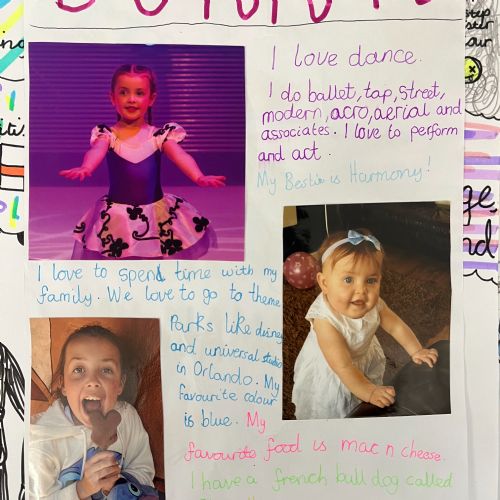 I love dance.
I do ballet, tap, street,
modern, acro, aerial and
associates. I love to perform
and act.
My Bestie is Harmony!
I love to spend time with my
family. We love to go to theme
Parks like disney
and universal studios
in Orlando. My
favourite colour
is blue. My
favourite food is mac n cheese.
I have a french bull dog called